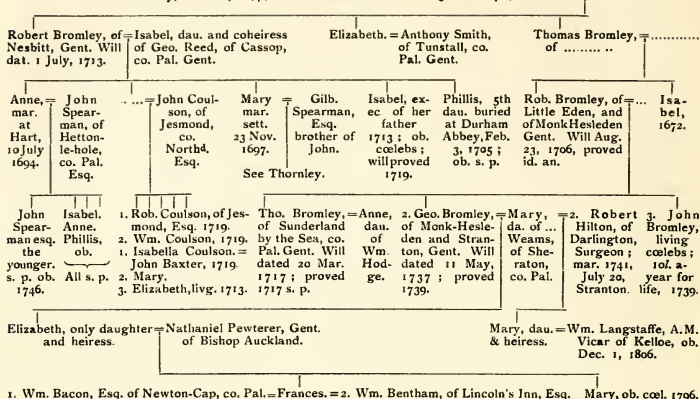 Robert Bromley, of = Isabel, dau. and coheiress
Nesbitt, Gent. Will of Geo. Reed, of Cassop,
dat. 1 July, 1713. co. Pal. Gent.
Elizabeth. = Anthony Smith,
of Tunstall, co.
Pal. Gent.
Thomas Bromley, = ............
of ......... ..
Anne, =
mar.
at
Hart,
10 July
1694.
John
Spear-
man, of
Hetton-
le-hole,
co. Pal.
Esq.
.. ... = John Coul-
son, of
Jesmond,
co.
Northd.
Esq.
Mary =
mar.
sett.
23 Nov.
1697.
Gilb.
Spearman,
Esq.
brother of
John.
See Thornley.
Isabel, ex-
ec of her
father
1713 ; ob.
cœlebs ;
will proved
1719.
Phillis, 5th
dau. buried
at Durham
Abbey, Feb.
3, 1705 ;
ob. s. p.
Rob. Bromley, of = ...
Little Eden, and
of Monk Hesleden
Gent. Will Aug.
23, 1706, proved
id. an.
Isa-
bel,
1672.
John
Spear-
man esq.
the
younger.
s. p. ob.
1746.
Isabel.
Anne.
Phillis,
ob.
All s. p.
1. Rob. Coulson, of Jes-
mond, Esq. 1719.
2. Wm. Coulson, 1719.
1. Isabella Coulson. =
John Baxter, 1719.
2. Mary.
3. Elizabeth, livg. 1713.
Tho. Bromley, =
of Sunderland
by the Sea, co.
Pal. Gent. Will
dated 20 Mar.
1717 ; proved
1717 s. p.
Anne,
dau.
of
Wm.
Hod-
ge.
2. Geo. Bromley, =
of Monk-Hesle-
den and Stran-
ton, Gent. Will
dated 11 May,
1737 ; proved
1739.
Mary,
da. of ...
Weams,
of She-
raton,
co. Pal.
= 2. Robert
Hilton, of
Darlington,
Surgeon ;
mar. 1741,
July 20,
Stranton.
3. John
Bromley,
living
cœlebs ;
10l. a-
year for
life, 1739.
Elizabeth, only daughter = Nathaniel Pewterer, Gent.
and heiress. of Bishop Auckland.
Mary, dau. = Wm. Langstaffe, A.M.
& heiress. Vicar of Kelloe, ob.
Dec. 1, 1806.
1. Wm. Bacon, Esq. of Newton-Cap, co. Pal. = Frances. = 2. Wm. Bentham, of Lincoln's Inn, Esq. Mary, ob. cœl. 1796.